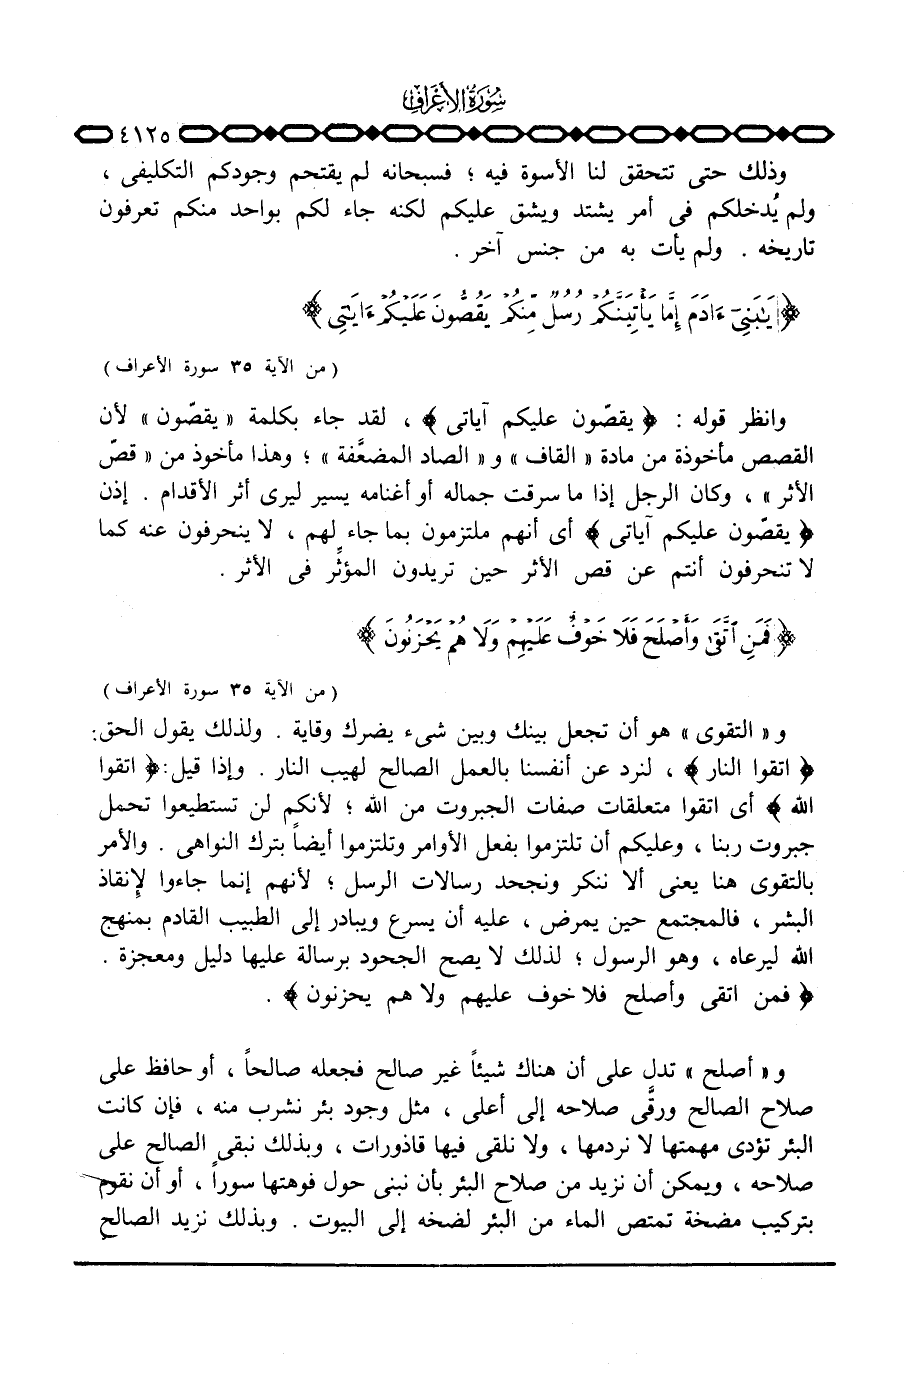 سورة الأعراف
٤١٢٥
وذلك حتى تتحقق لنا الأسوة فيه ؛ فسبحانه لم يقتحم وجودكم التكليفى ،
ولم يُدخلكم فى أمر يشتد ويشق عليكم لكنه جاء لكم بواحد منكم تعرفون
تاريخه . ولم يأت به من جنس آخر .
﴿ يَٰبَنِىٓ ءَادَمَ إِمَّا يَأْتِيَنَّكُمْ رُسُلٌ مِّنكُمْ يَقُصُّونَ عَلَيْكُمْ ءَايَٰتِى ﴾
( من الآية ٣٥ سورة الأعراف )
وانظر قوله : ﴿ يقصّون عليكم آياتى ﴾ ، لقد جاء بكلمة « يقصّون » لأن
القصص مأخوذة من مادة « القاف » و « الصاد المضعَّفة » ؛ وهذا مأخوذ من « قصّ
الأثر » ، وكان الرجل إذا ما سرقت جماله أو أغنامه يسير ليرى أثر الأقدام . إذن
﴿ يقصّون عليكم آياتى ﴾ أى أنهم ملتزمون بما جاء لهم ، لا ينحرفون عنه كما
لا تنحرفون أنتم عن قص الأثر حين تريدون المؤثِّر فى الأثر .
﴿ فَمَنِ ٱتَّقَىٰ وَأَصْلَحَ فَلَا خَوْفٌ عَلَيْهِمْ وَلَا هُمْ يَحْزَنُونَ ﴾
( من الآية ٣٥ سورة الأعراف )
و « التقوى » هو أن تجعل بينك وبين شىء يضرك وقاية . ولذلك يقول الحق :
﴿ اتقوا النار ﴾ ، لنرد عن أنفسنا بالعمل الصالح لهيب النار . وإذا قيل : ﴿ اتقوا
الله ﴾ أى اتقوا متعلقات صفات الجبروت من الله ؛ لأنكم لن تستطيعوا تحمل
جبروت ربنا ، وعليكم أن تلتزموا بفعل الأوامر وتلتزموا أيضاً بترك النواهى . والأمر
بالتقوى هنا يعنى ألا ننكر ونجحد رسالات الرسل ؛ لأنهم إنما جاءوا لإنقاذ
البشر ، فالمجتمع حين يمرض ، عليه أن يسرع ويبادر إلى الطبيب القادم بمنهج
الله ليرعاه ، وهو الرسول ؛ لذلك لا يصح الجحود برسالة عليها دليل ومعجزة .
﴿ فمن اتقى وأصلح فلا خوف عليهم ولا هم يحزنون ﴾ .
و « أصلح » تدل على أن هناك شيئاً غير صالح فجعله صالحاً ، أو حافظ على
صلاح الصالح ورقَّى صلاحه إلى أعلى ، مثل وجود بئر نشرب منه ، فإن كانت
البئر تؤدى مهمتها لا نردمها ، ولا نلقى فيها قاذورات ، وبذلك نبقى الصالح على
صلاحه ، ويمكن أن نزيد من صلاح البئر بأن نبنى حول فوهتها سوراً ، أو أن نقوم
بتركيب مضخة تمتص الماء من البئر لضخه إلى البيوت . وبذلك نزيد الصالح